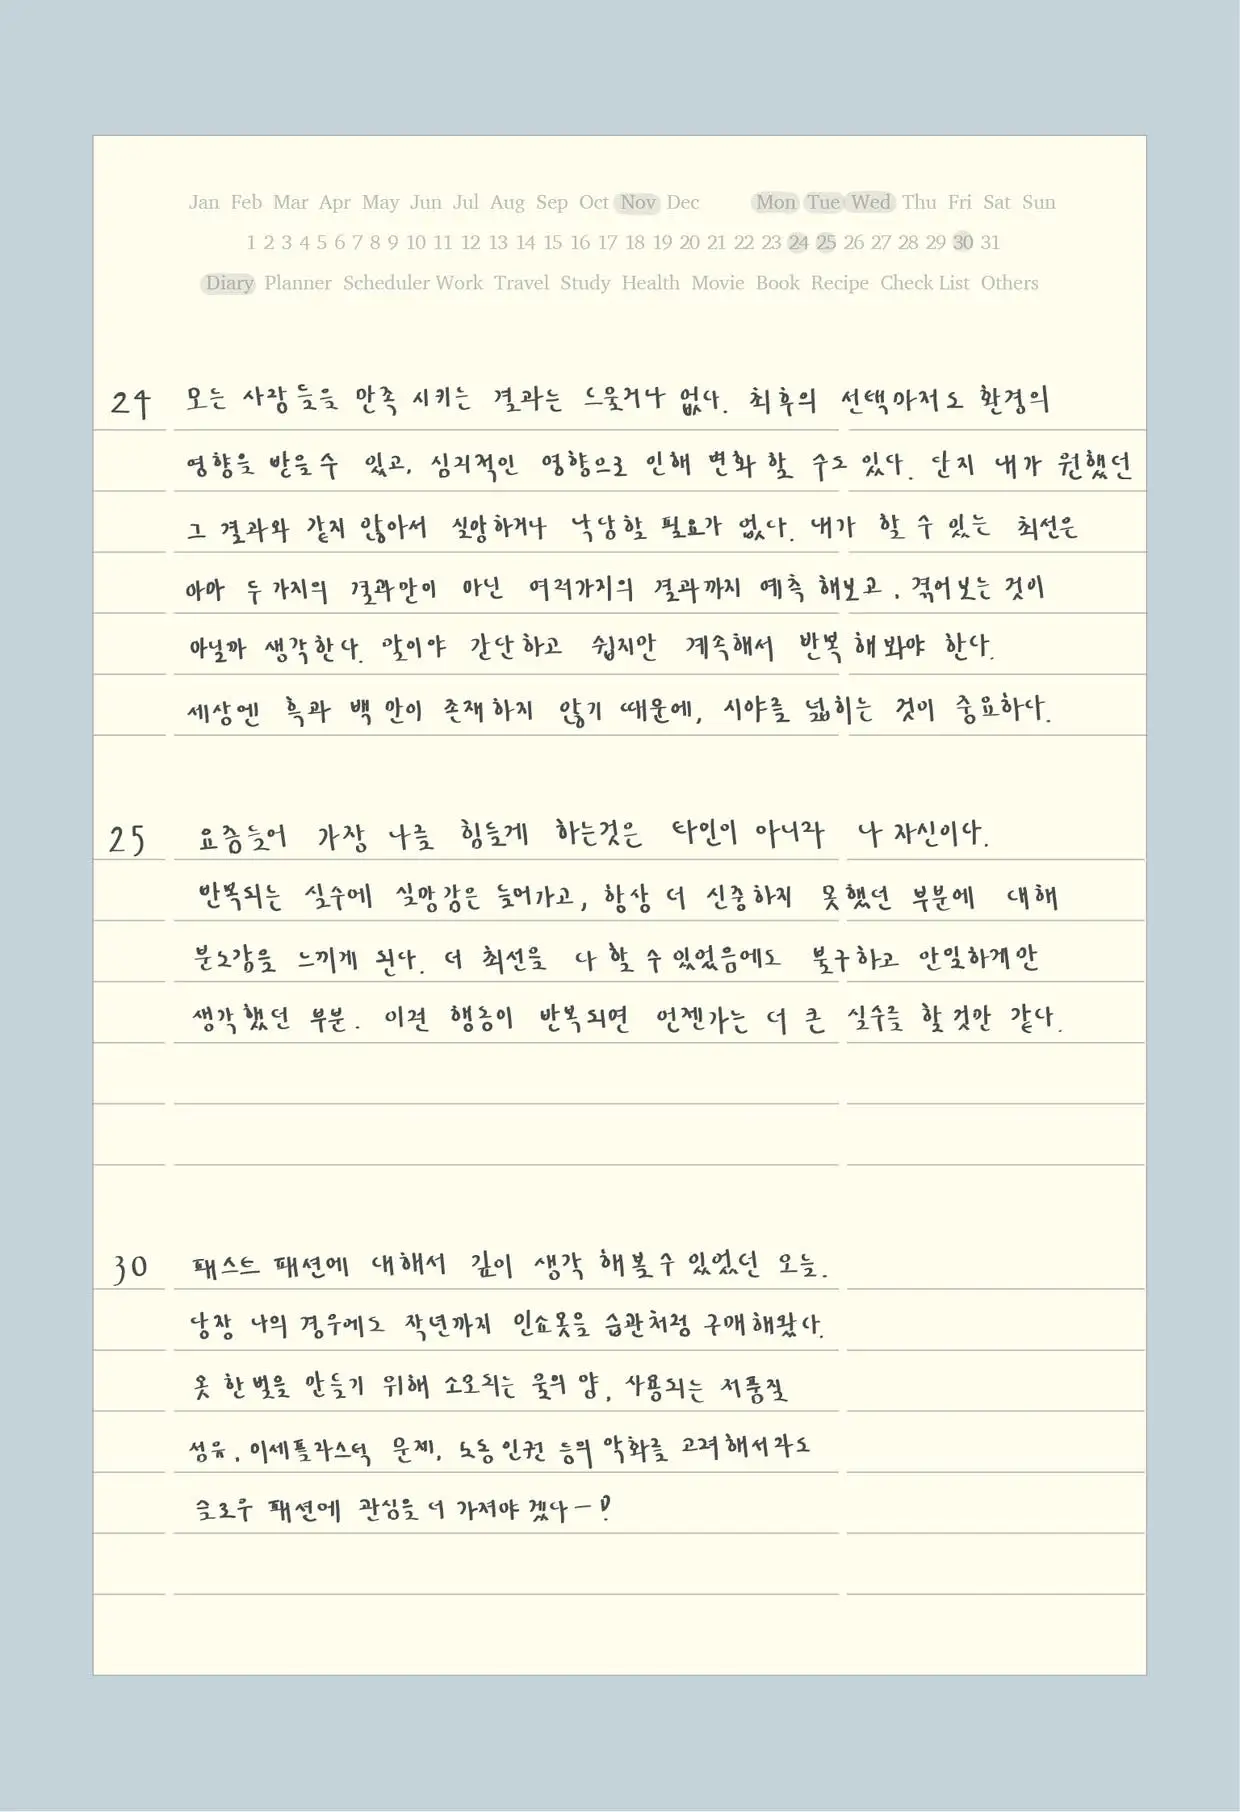 Jan Feb Mar Apr May Jun Jul Aug Sep Oct Nov Dec Mon Tue Wed Thu Fri Sat Sun
1 2 3 4 5 6 7 8 9 10 11 12 13 14 15 16 17 18 19 20 21 22 23 24 25 26 27 28 29 30 31
Diary Planner Scheduler Work Travel Study Health Movie Book Recipe Check List Others
24 모든 사람들을 만족 시키는 결과는 드물거나 없다. 최후의 선택마저도 환경의
영향을 받을 수 있고, 심리적인 영향으로 인해 변화 할 수도 있다. 단지 내가 원했던
그 결과와 같지 않아서 실망하거나 낙담할 필요가 없다. 내가 할 수 있는 최선은
아마 두가지의 결과만이 아닌 여러가지의 결과까지 예측 해보고, 겪어보는 것이
아닐까 생각한다. 말이야 간단하고 쉽지만 계속해서 반복 해 봐야 한다.
세상엔 흑과 백 만이 존재하지 않기 때문에, 시야를 넓히는 것이 중요하다.
25 요즘들어 가장 나를 힘들게 하는것은 타인이 아니라 나 자신이다.
반복되는 실수에 실망감은 늘어가고, 항상 더 신중하지 못했던 부분에 대해
분노감을 느끼게 된다. 더 최선을 다 할 수 있었음에도 불구하고 안일하게만
생각했던 부분. 이런 행동이 반복되면 언젠가는 더 큰 실수를 할 것만 같다.
30 패스트 패션에 대해서 깊이 생각 해볼 수 있었던 오늘.
당장 나의 경우에도 작년까지 인쇼옷을 습관처럼 구매해왔다.
옷 한벌을 만들기 위해 소모되는 물의 양, 사용되는 저품질
섬유, 미세플라스틱 문제, 노동 인권 등의 악화를 고려해서라도
슬로우 패션에 관심을 더 가져야 겠다—!